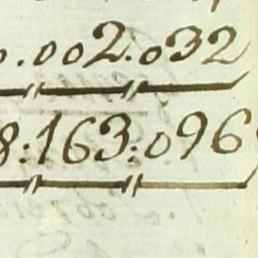 0.002.032
8:163:096